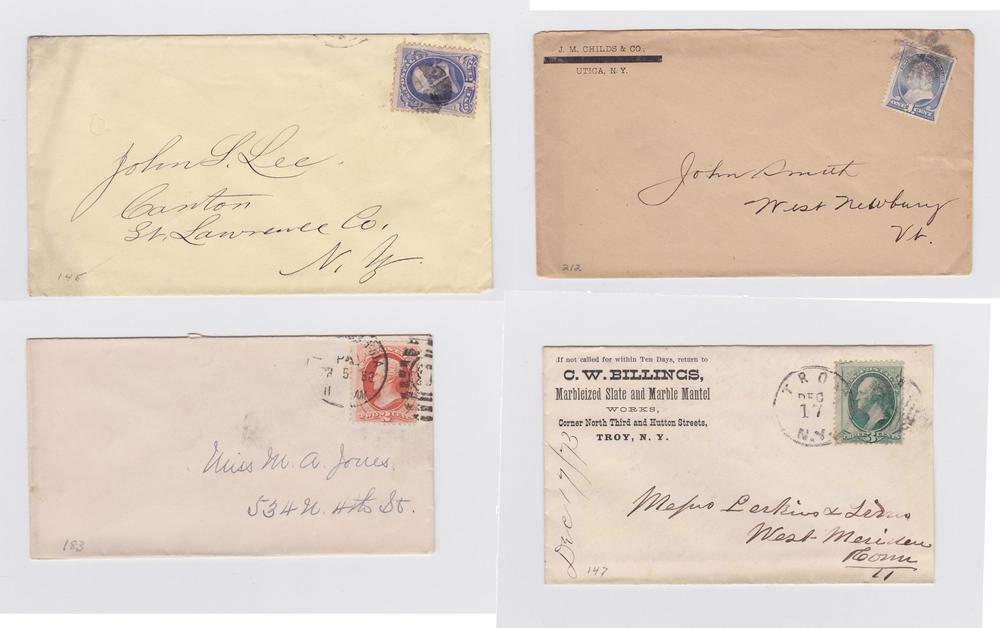 John S. Lee.
Canton
St. Lawrence Co.
N. Y.
145
J. M. CHILDS & CO.,
UTICA, N. Y.
ONE CENT
John Smith
West Newbury
Vt.
212
11 AM
Miss M. A. Jones,
534 N. 4th St.
183
If not called for within Ten Days, return to
C. W. BILLINGS,
Marbleized Slate and Marble Mantel
WORKS,
Corner North Third and Hutton Streets,
TROY, N. Y.
TROY
DEC
17
N.Y.
Dec 17/73
Messrs Perkins &
West Meriden
Conn
147